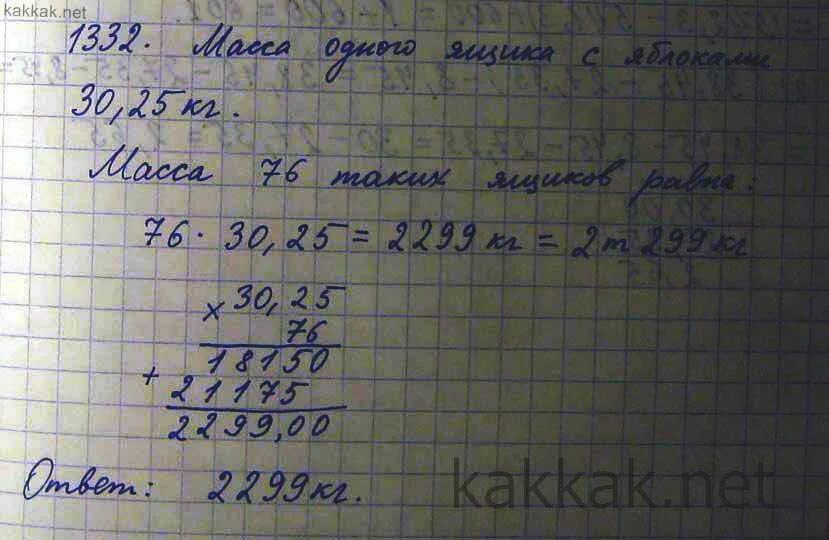 kakkak.net
1332. Масса одного ящика с яблоками
30,25 кг.
Масса 76 таких ящиков равна:
76 · 30,25 = 2299 кг = 2 т 299 кг
× 30,25
76
18150
+ 21175
2299,00
Ответ: 2299 кг.
kakkak.net